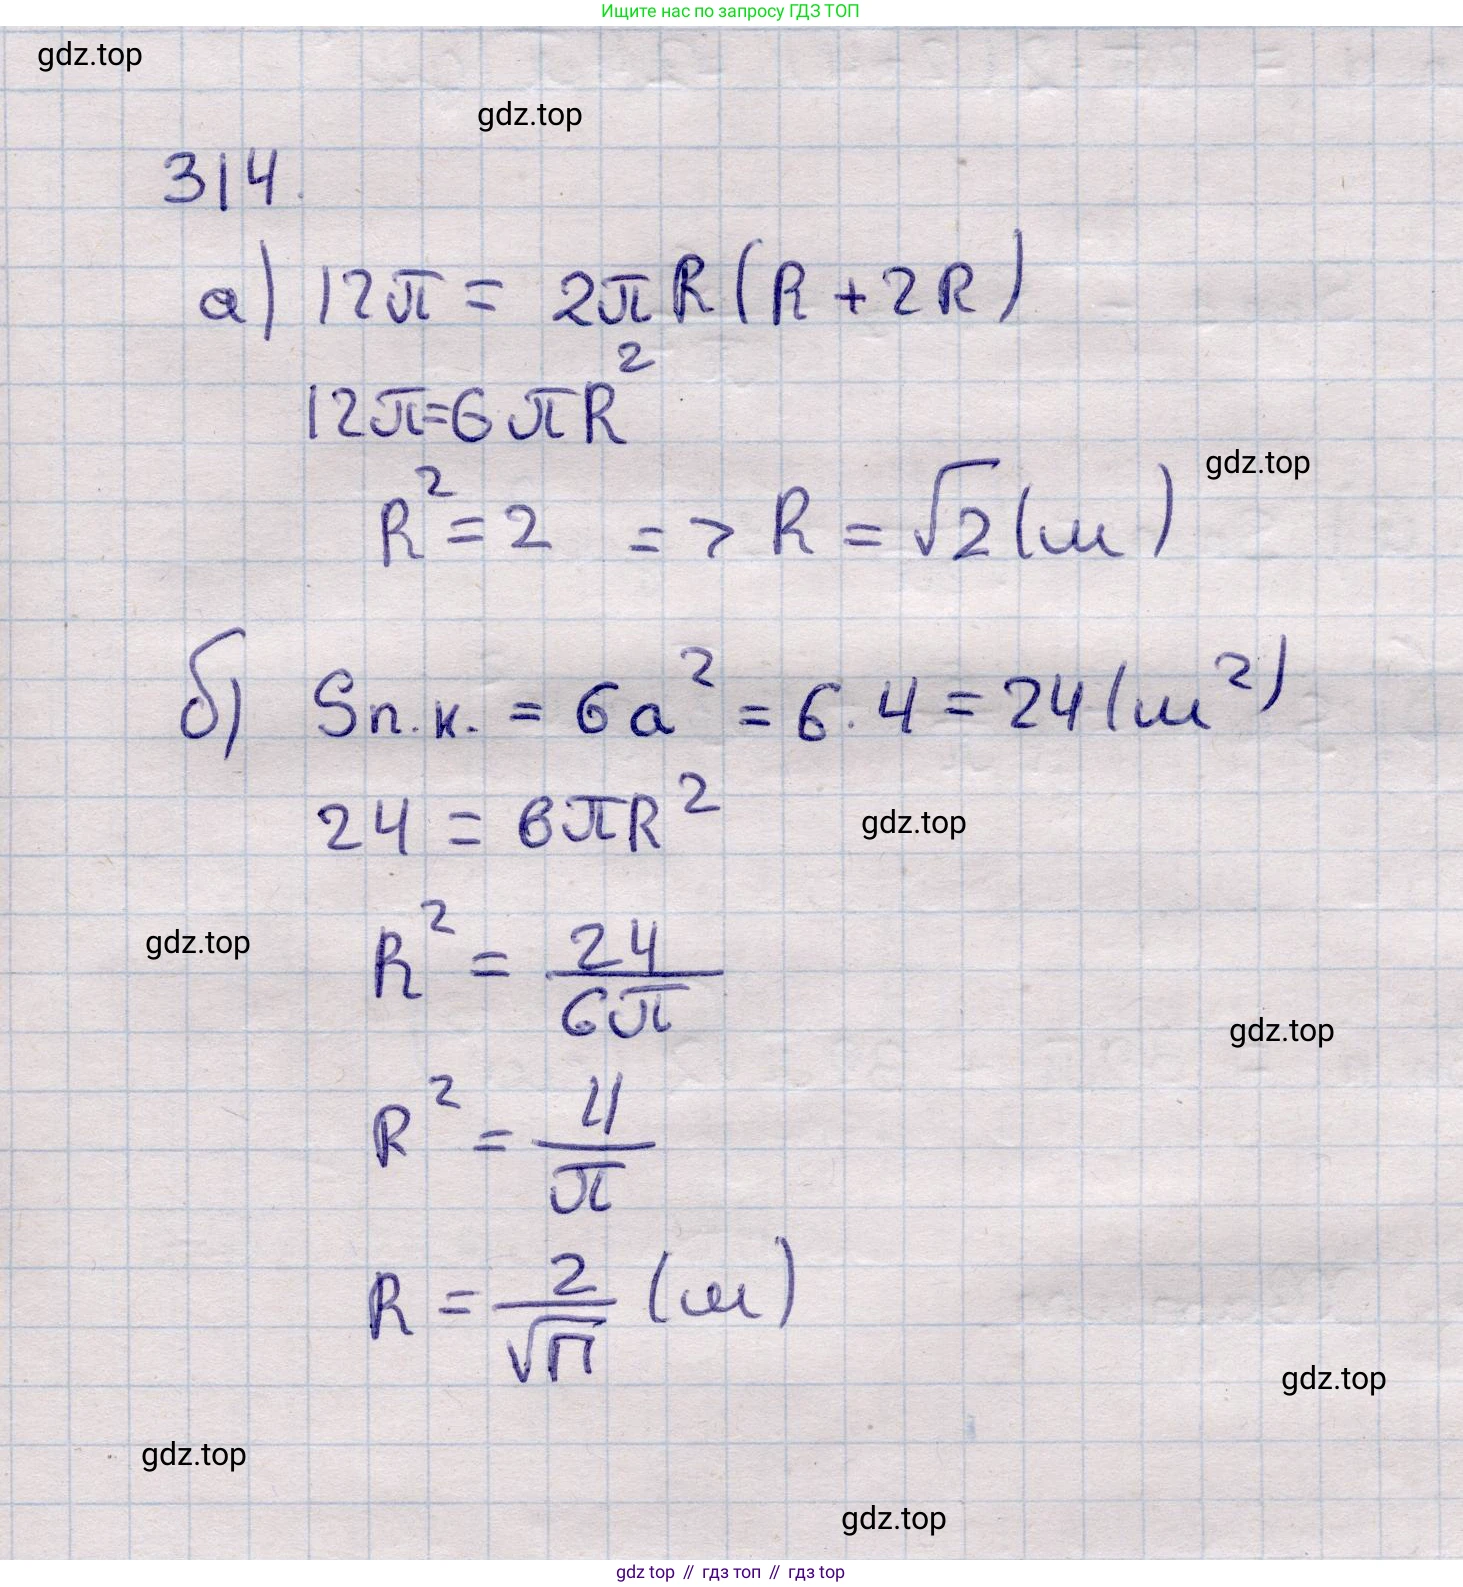 Ищите нас по запросу ГДЗ ТОП
gdz.top
gdz.top
314.
а) 12π = 2πR(R + 2R)
12π=6πR²
gdz.top
R² = 2 => R = √2 (м)
б) Sп.к. = 6a² = 6·4 = 24 (м²)
24 = 6πR²
gdz.top
gdz.top
R² = 24/6π
gdz.top
R² = 4/π
R = 2/√π (м)
gdz.top
gdz.top
gdz.top
gdz top // гдз топ // gdz top